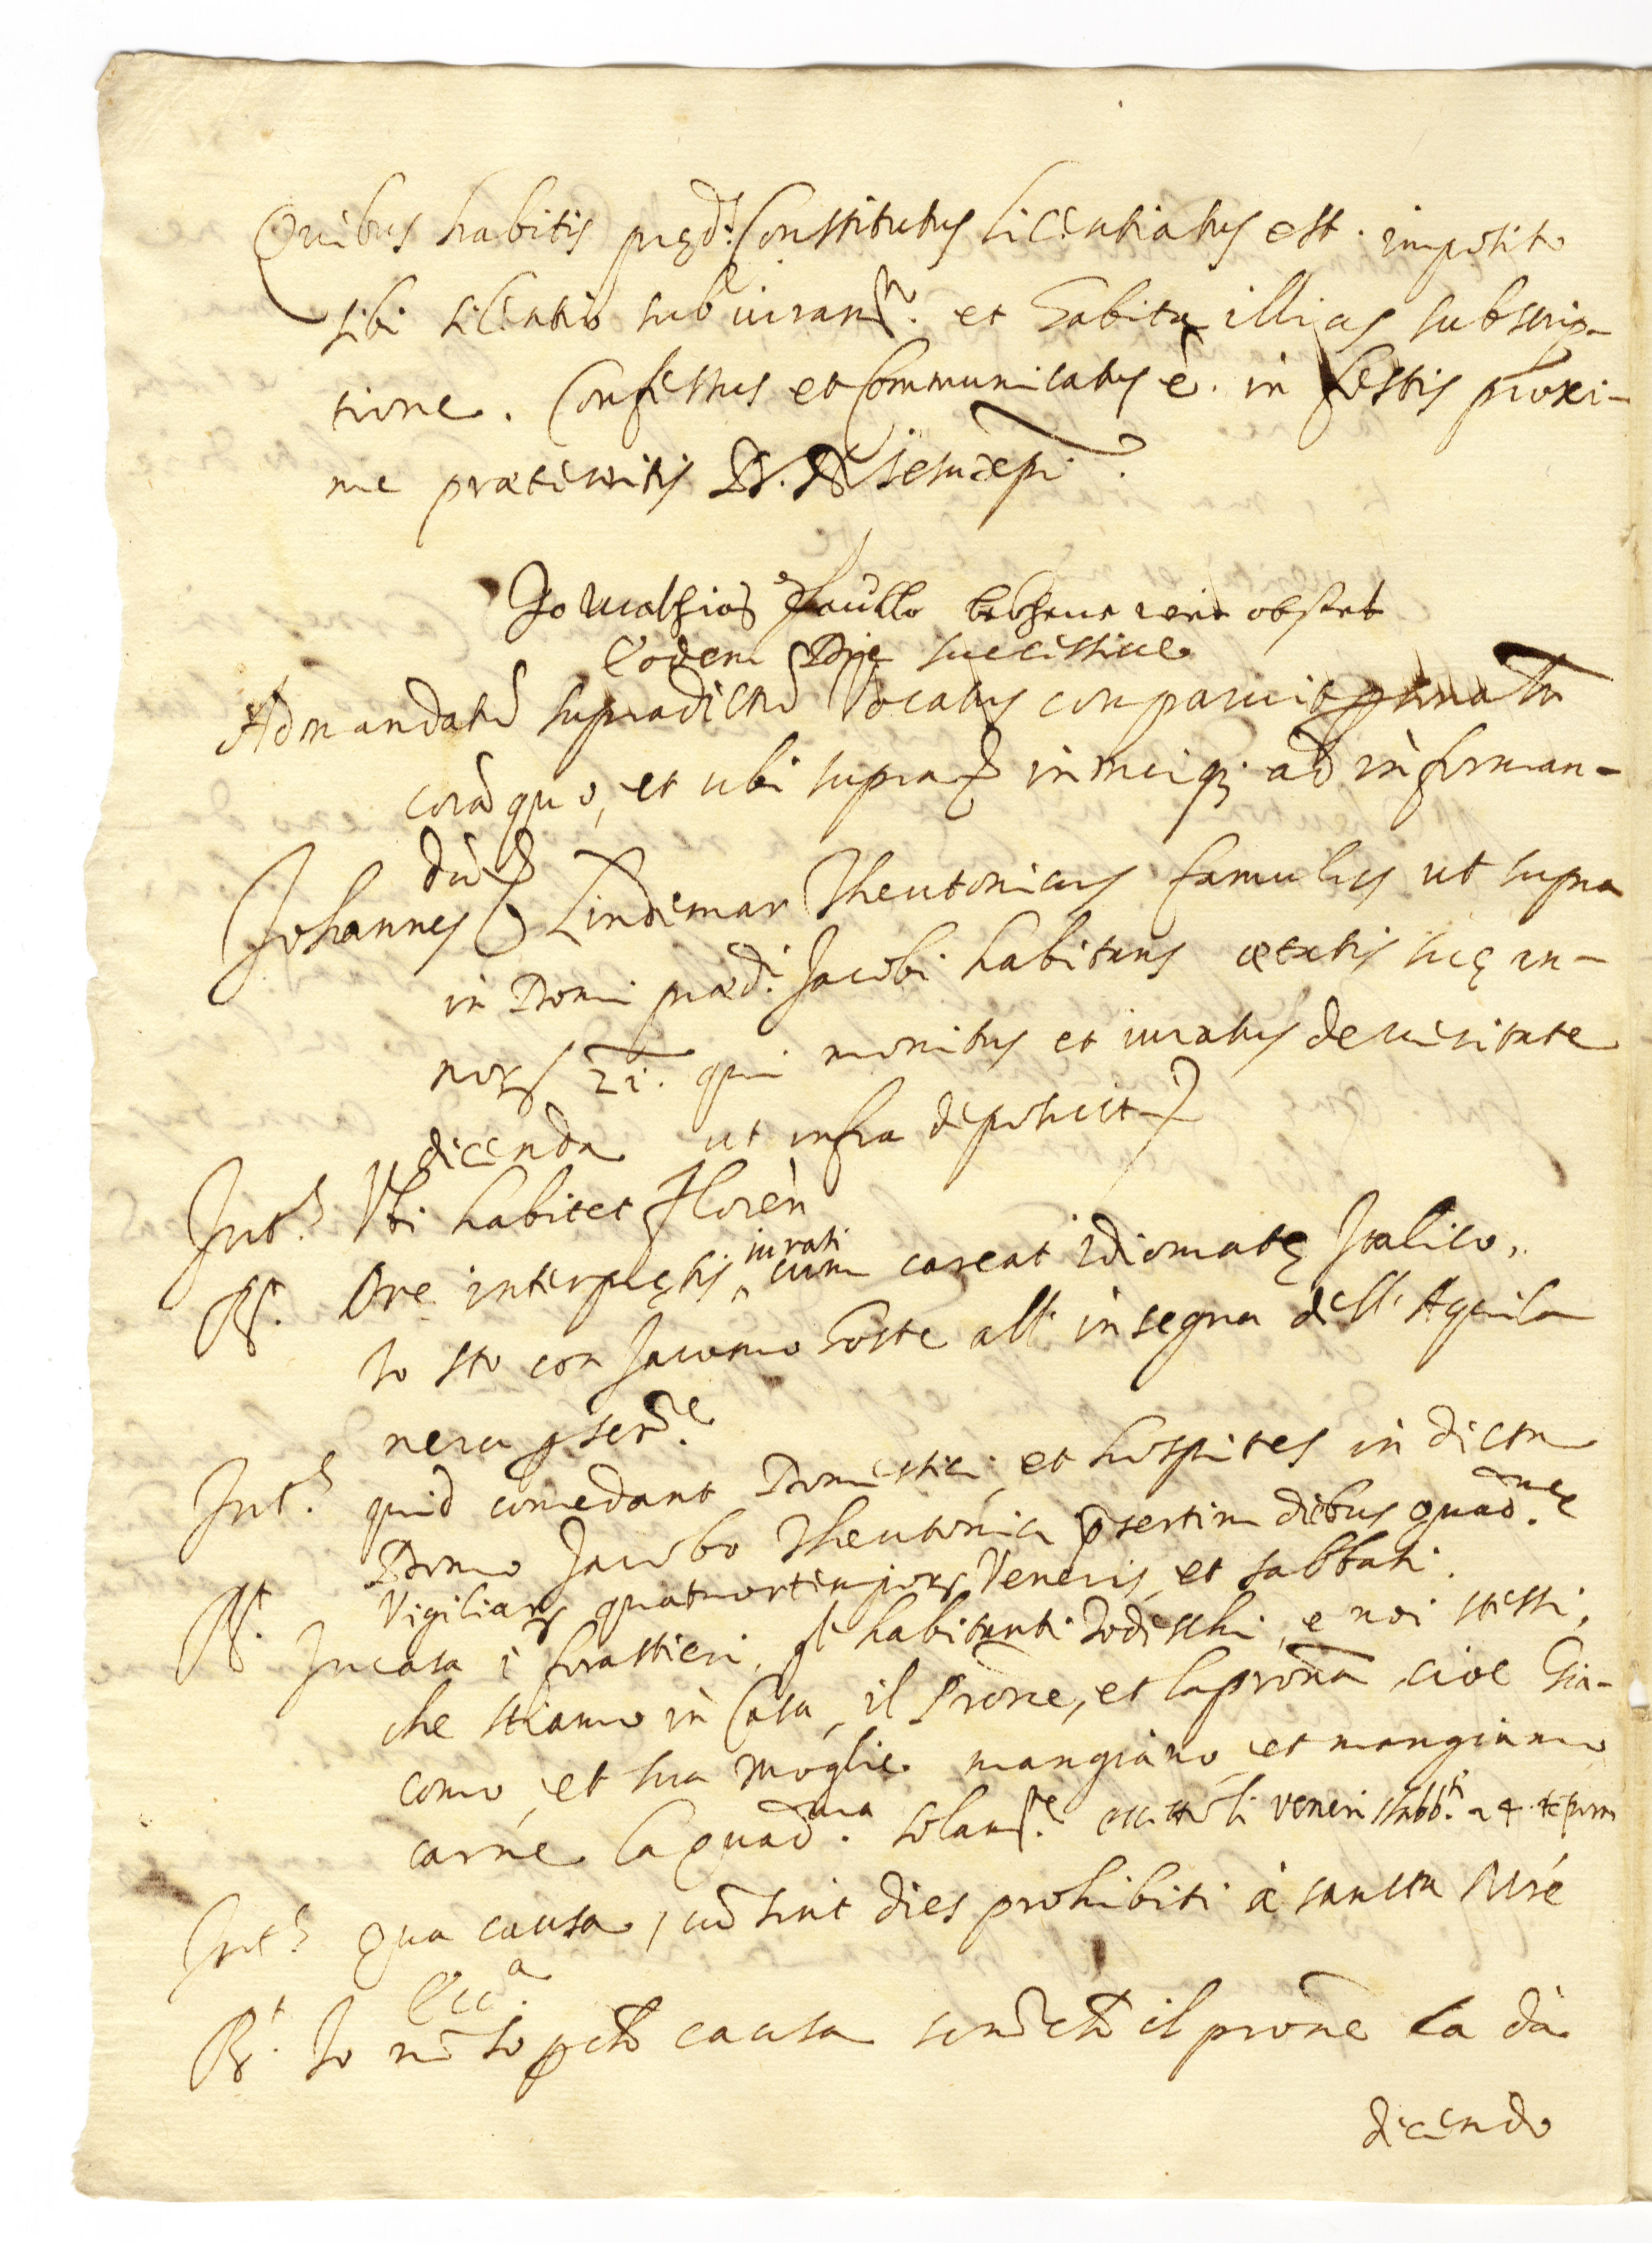 Quibus habitis pręd.s Constitutus licentiatus est. imposito
sibi silentio sub iuram.to et habita illius subscrip-
tione. Confessus et Communicatus ẽ. in festis proxi-
me praeteritis D. N. Jesu xpi.
Io
Eodem Die successive
Ad mandatũ supradictũ Vocatus comparuit
corã quo, et ubi supra in meiq; ad informan-
dũ
Johannes Lindemar Theutonicus famulus ut supra
in Domi præd.i Jacobi habitans ætatis suę an-
nor 21. qui monitus et iuratus de veritate
dicenda ut infra deposuit
Int.s Ubi habitet Floren
R.t Ore interpretis iurati cum careat idiomatę Italico,
Io sto con Jacomo hoste all' insegna dell' Aquila
nera p ser.re
Int.s quid comedant Domestici, et hospites in dicta
Domo Jacobo Theutonici psertim diebus quad.mæ
Vigiliarȝ quatuortemporȝ Veneris, et sabbati.
R.t In casa i forastieri, gl' habitanti Todeschi, e noi stessi,
che stiamo in Casa, il Prõne, et la prõna cioe Gia-
como, et sua Moglie mangiano, et mangiamo
carne la quad.ma solam.te veneri sabb.ti 4 tempora
Int.s Qua causa, cũ sint dies prohibiti à sancta Mre
Ecc.a
R.t Io nõ so p chè causa senõ chè il prõne la dà
dicendo